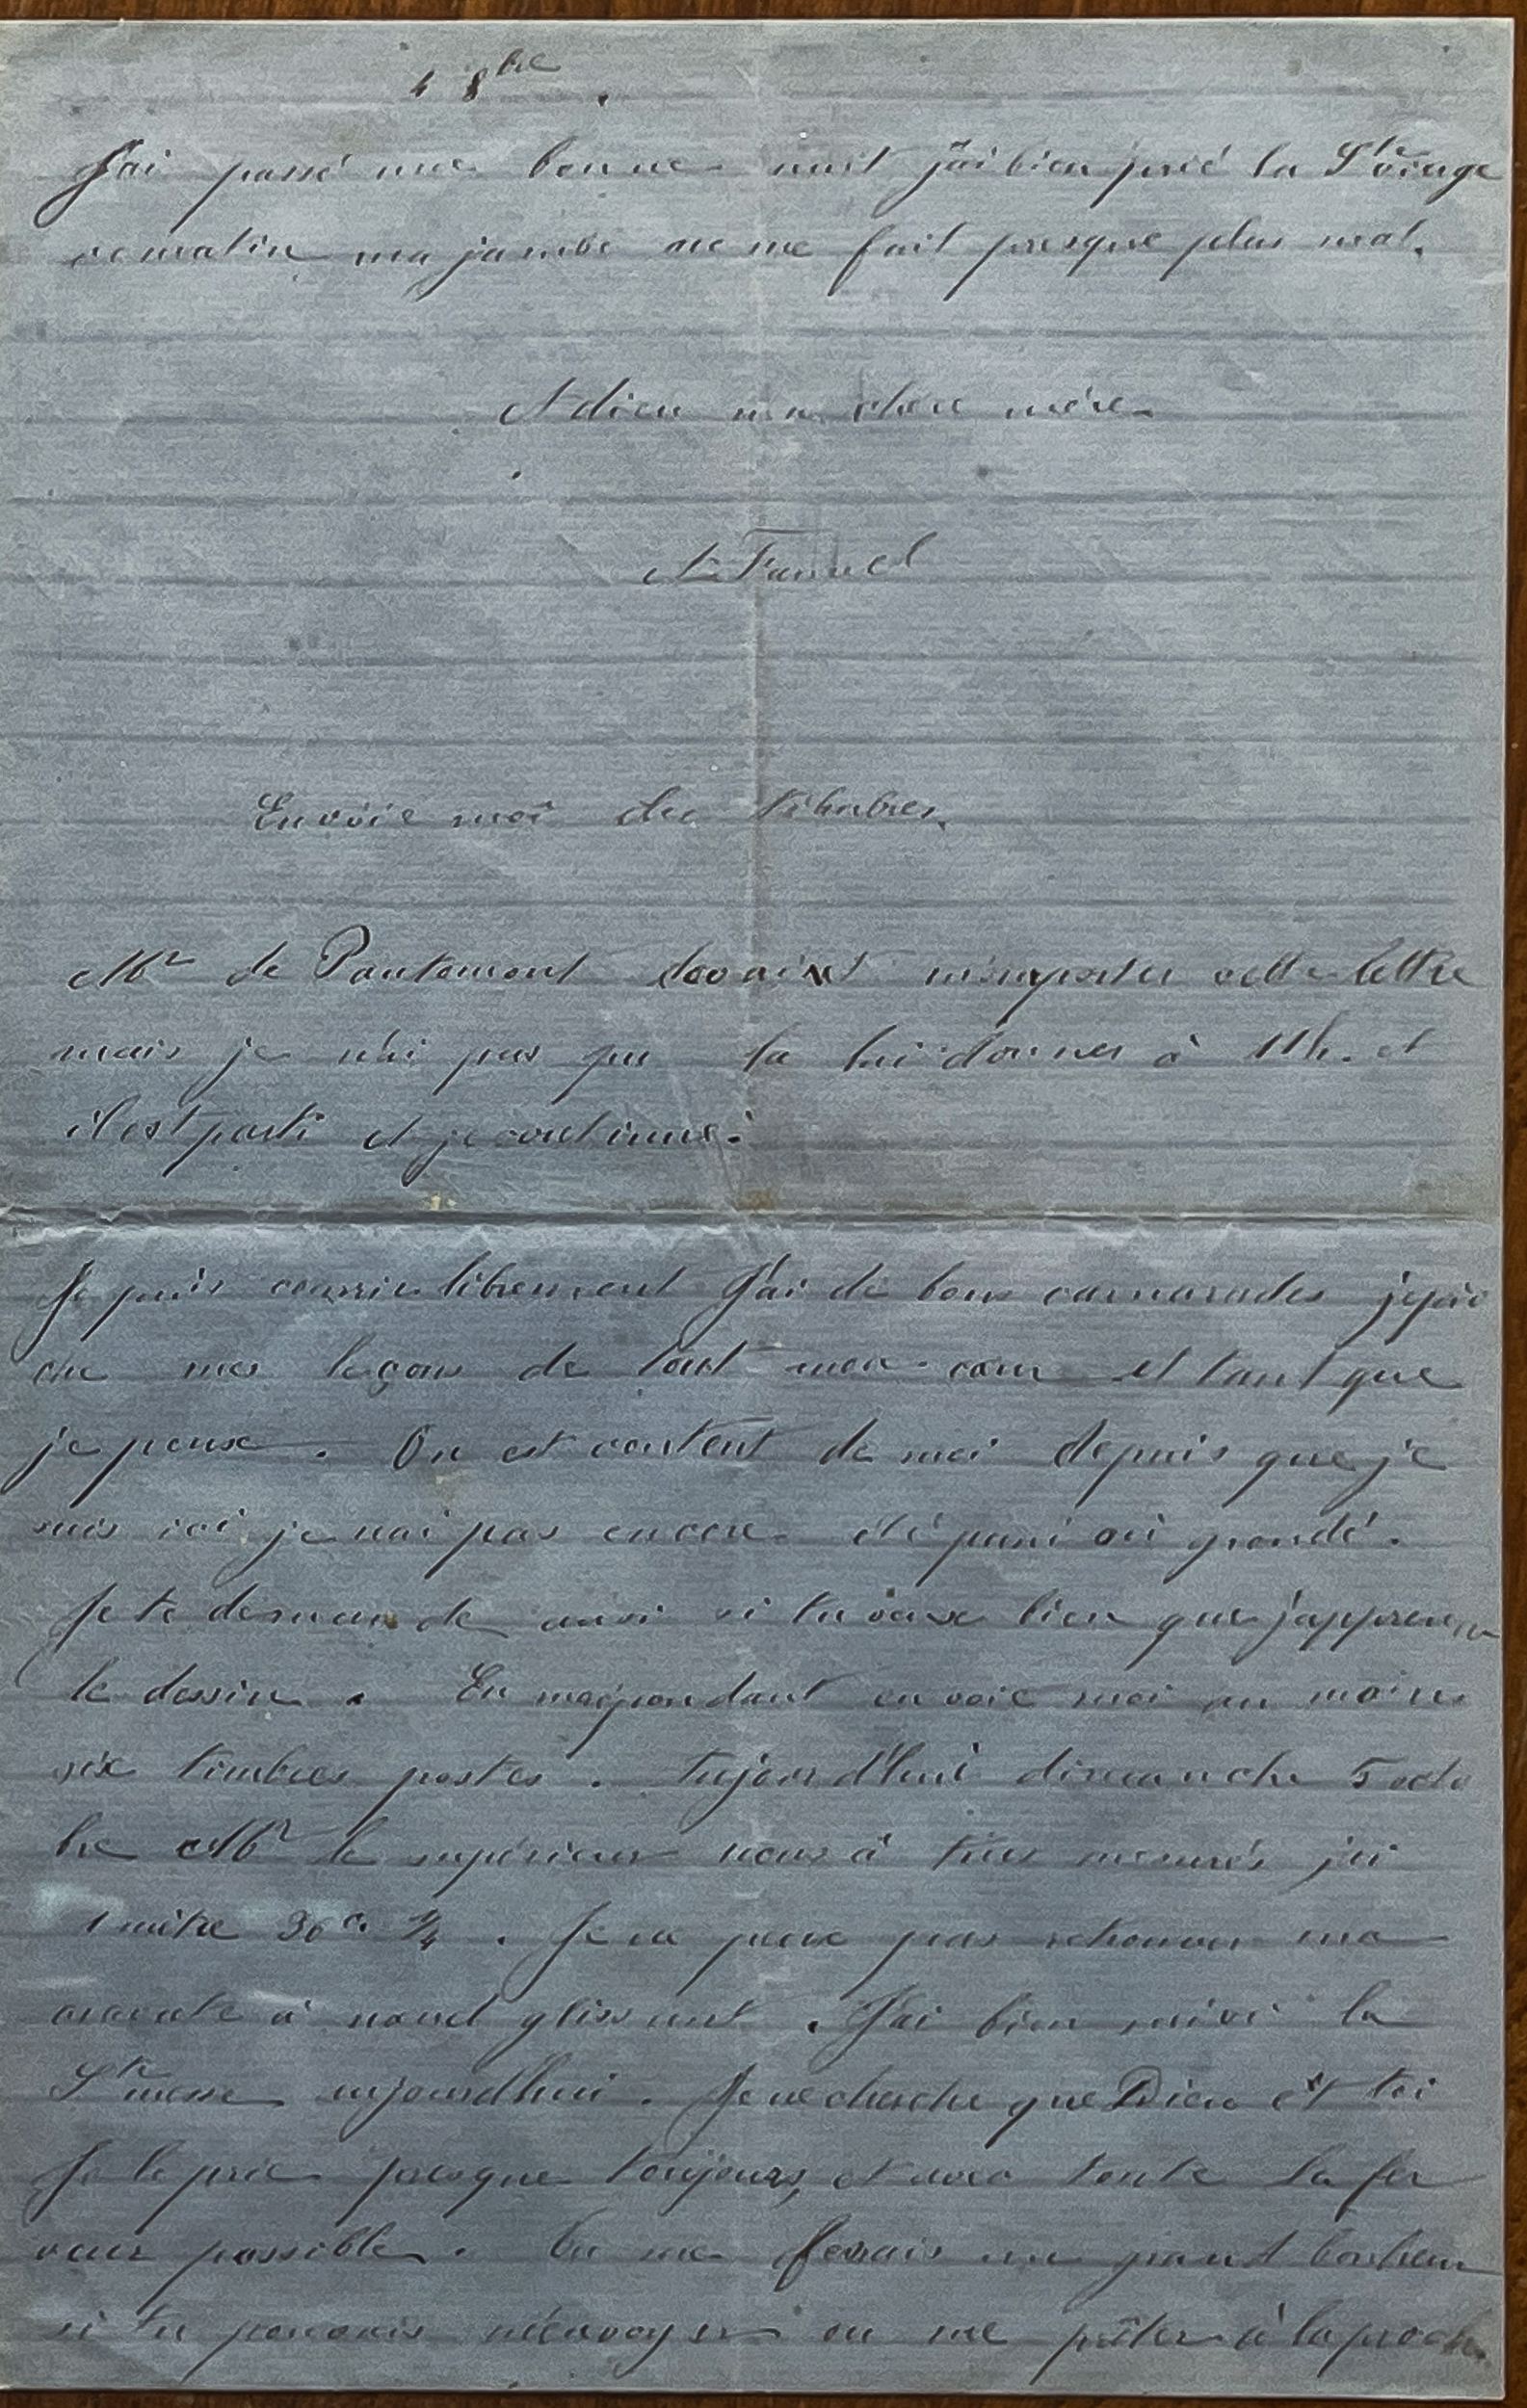 4 8bre
J'ai passé une bonne nuit j'ai bien prié la Ste vierge
ce matin ma jambe ne me fait presque plus mal.
Adieu ma chère mère
A
Envoie moi des timbres.
Mr de devait m'emporter cette lettre
mais je n'ai pas pu la lui donner à 11h. et
il est parti et je continue.
Je puis courrir librement J'ai de bons camarades
mes leçons de tout mon cœur et tant que
je peux. On est content de moi depuis que je
suis ici je n'ai pas encore été puni ou grondé.
Je te demande aussi si tu veux bien que j'apprenne
le dessin. En envoie moi au moins
six timbres postes. Aujourd'hui dimanche 5 octo
bre Mr le supérieur nous à tous mesurés j'ai
1 mètre 30c. 1/4. Je ne peux pas retrouver ma
cravate à nœud glissant. J'ai bien suivi la
Ste messe aujourdhui. Je ne cherche que Dieu et toi
Je le prie presque toujours, et avec toute la fer
veur possible. Tu me ferrais un grand bonheur
si tu pouvais m'envoyer ou me prêter à la proch